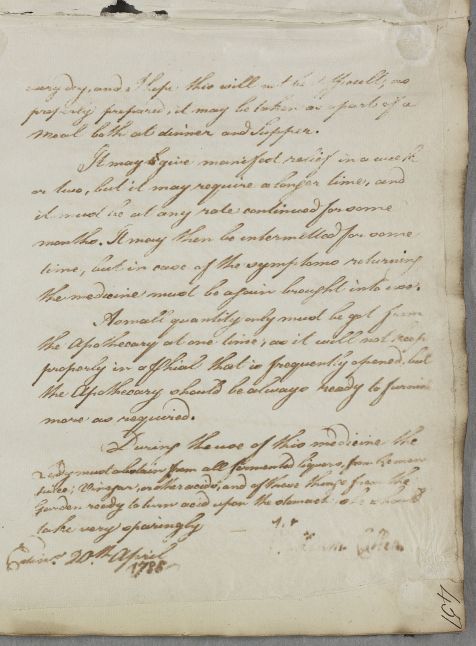 every day, and I hope this will not be difficult, as
properly prepared, it may be taken as a part of a
meal both at dinner and Supper.
It may give manifest relief in a week
or two, but it may require a longer time, and
it must be at any rate continued for some
months. It may then be intermitted for some
time, but in case of the symptoms returning
the medicine must be again brought into use.
A small quantity only must be got from
the Apothecary at one time, as it will not keep
properly in a Phial that is frequently opened, but
the Apothecary should be always ready to furnish
more as required.
During the use of this medicine the
Lady must abstain from all fermented liquors, from Lemon
juice, Vinegar, or other acids, and of those things from the
Garden ready to turn acid upon the stomach she should
take very sparingly
Edinr. 20th April
1788
451